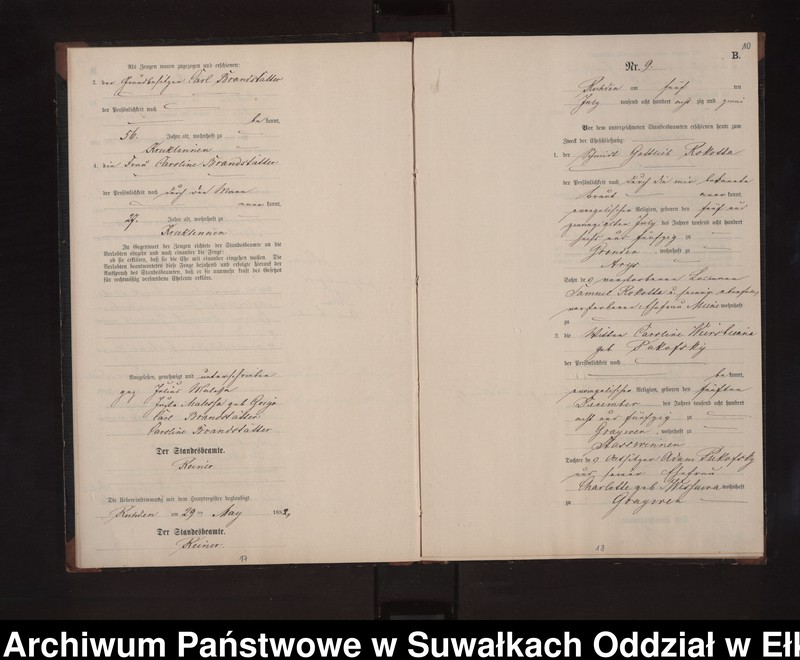 Als Zeugen waren zugezogen und erschienen:
3. der Grundbesitzer Carl Brandstätter
der Persönlichkeit nach
be kannt,
56. Jahre alt, wohnhaft zu
Kruklennen
4. die Frau Caroline Brandstätter
der Persönlichkeit nach durch den Mann
aner kannt,
27. Jahre alt, wohnhaft zu
Kruklennen
In Gegenwart der Zeugen richtete der Standesbeamte an die
Verlobten einzeln und nach einander die Frage:
ob sie erklären, daß sie die Ehe mit einander eingehen wollen. Die
Verlobten beantworteten diese Frage bejahend und erfolgte hierauf der
Ausspruch des Standesbeamten, daß er sie nunmehr kraft des Gesetzes
für rechtmäßig verbundene Eheleute erkläre.
Vorgelesen, genehmigt und unterschrieben
gez Julius
geb
Carl Brandstätter
Caroline Brandstätter
Der Standesbeamte.
Keiner
Die Uebereinstimmung mit dem Hauptregister beglaubigt
am 29ten May 1882,
Der Standesbeamte.
Keiner.
17
80
B.
Nr. 9
am fünf ten
July tausend acht hundert acht zig und zwei
Vor dem unterzeichneten Standesbeamten erschienen heute zum
Zweck der Eheschließung:
1. der Schmidt Gottlieb Kokotta
der Persönlichkeit nach durch die mir bekannte
Braut aner kannt,
evangelischer Religion, geboren den fünf und
zwanzigsten July des Jahres tausend acht hundert
sechs und fünfzig zu
wohnhaft zu
Arys
Sohn des verstorbenen
Samuel Kokotta u. seiner
verstorbenen Ehefrau wohnhaft
zu
2. die Wittwe Caroline
geb
der Persönlichkeit nach
be kannt,
evangelischer Religion, geboren den fünften
December des Jahres tausend acht hundert
acht und fünfzig zu
Graywen, wohnhaft zu
Staswinnen
Tochter des Adam
und seiner Ehefrau
Charlotte geb wohnhaft
zu Graywen
18
Archiwum Państwowe w Suwałkach Oddział w Ełk